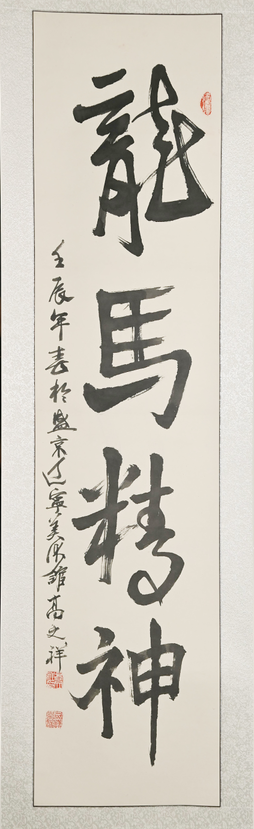 龍馬精神
壬辰年春於盛京遼寧美術館高文祥